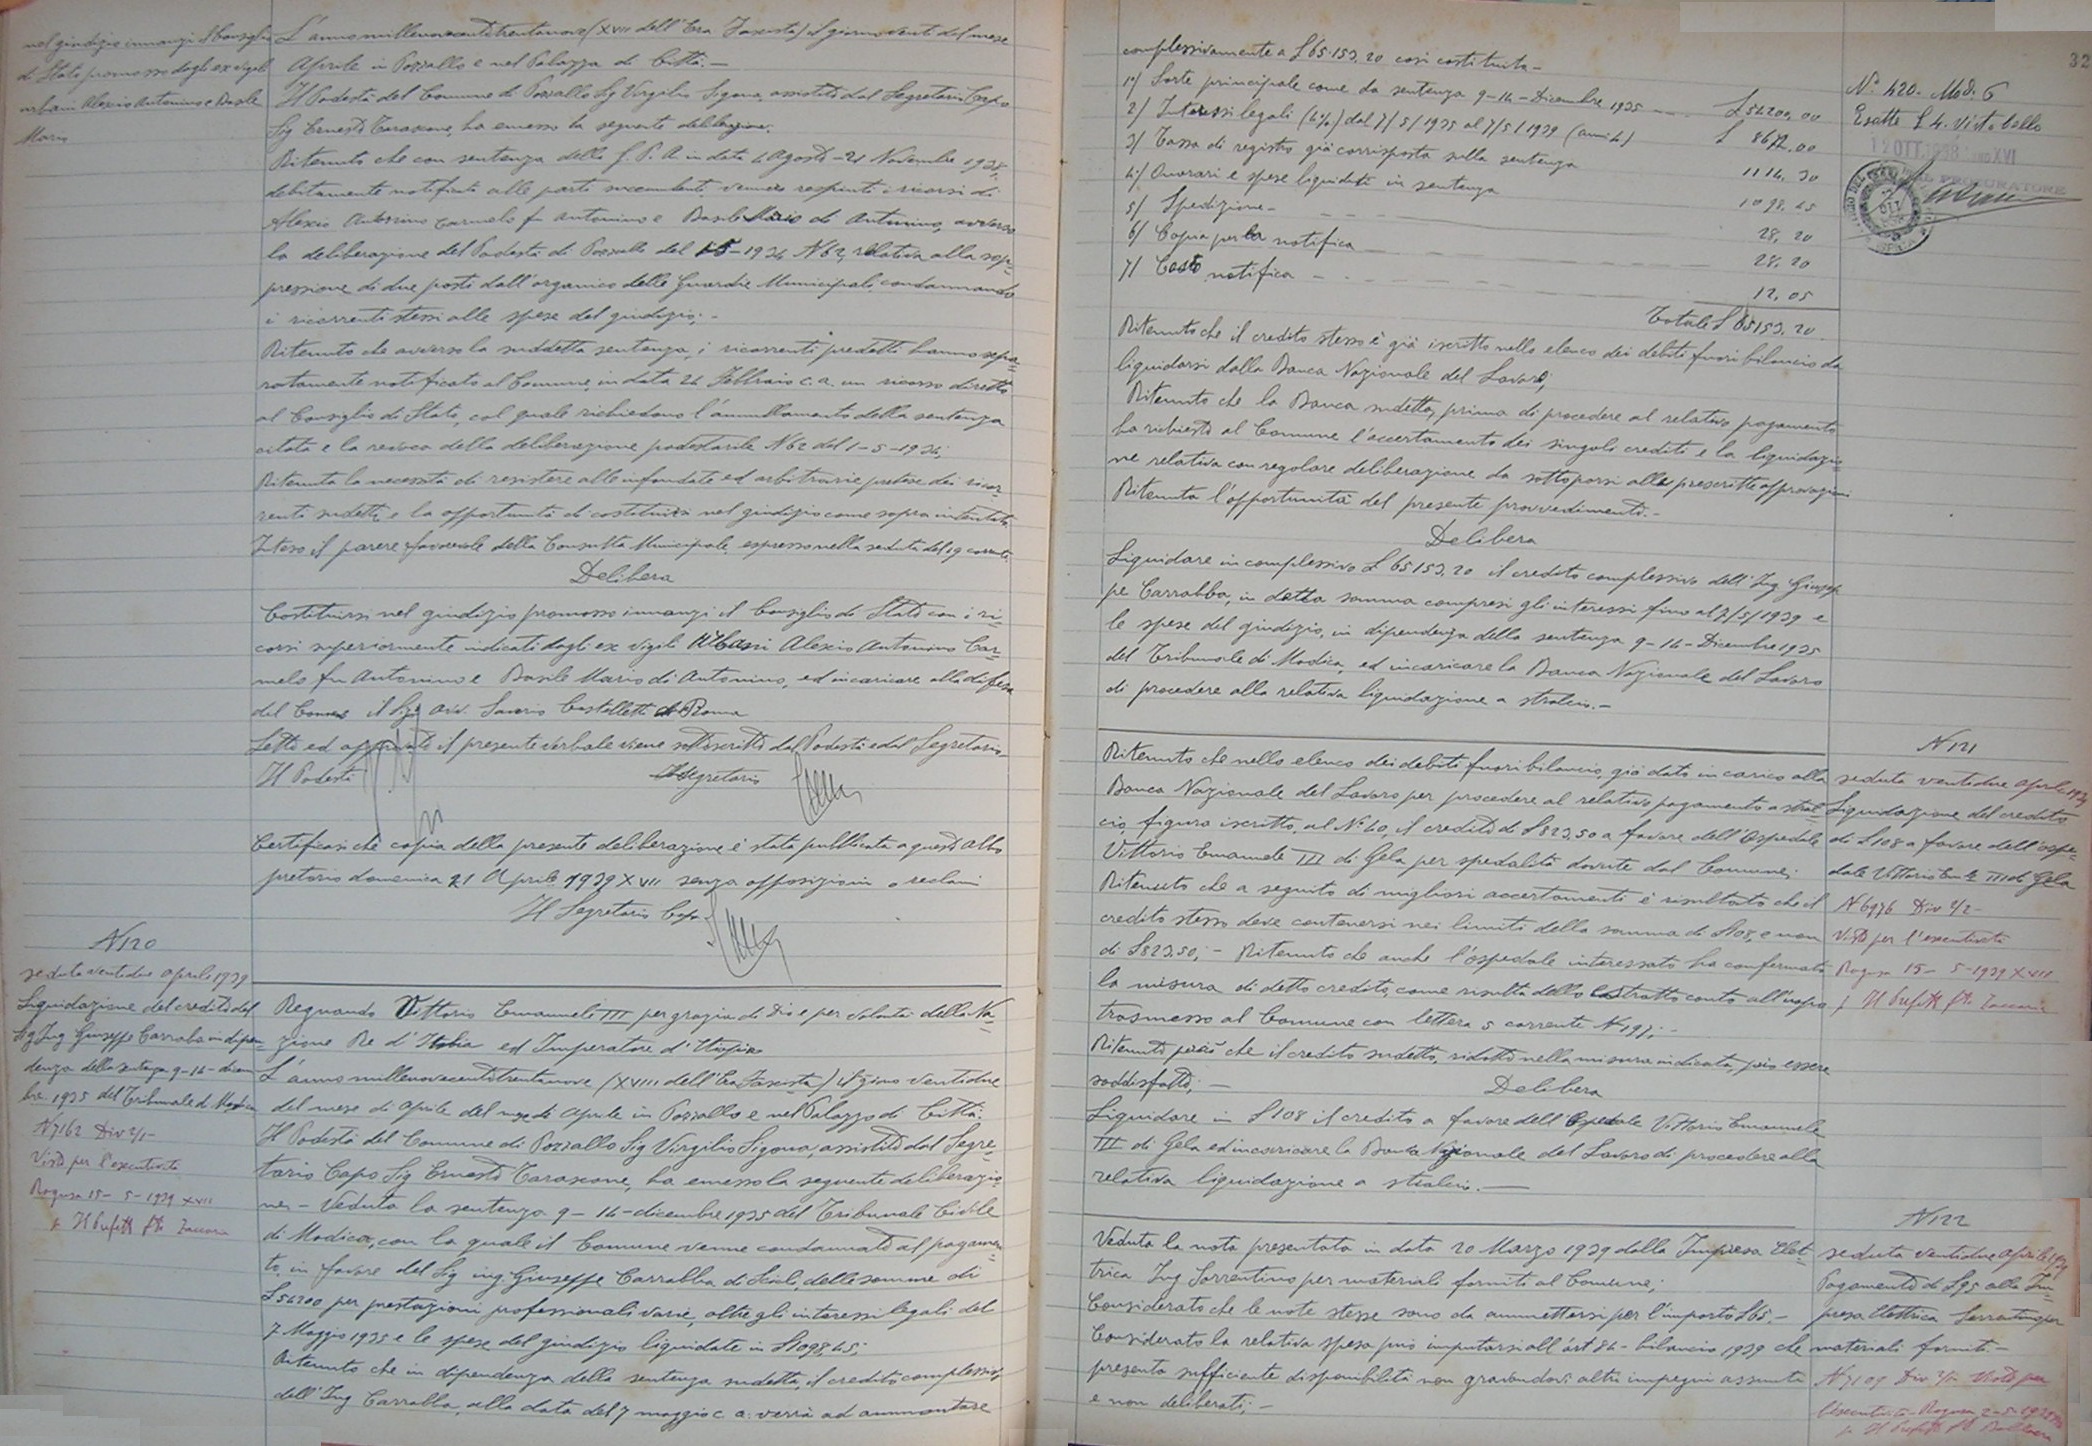 nel giudizio innanzi il Consiglio
di Stato promosso dagli ex vigili
urbani Alescio Antonino e Basile
Mario
L'anno millenovecentotrentanove (XVII dell'Era Fascista) il giorno venti del mese
Aprile in Pozzallo e nel Palazzo di Città.—
Il Podestà del Comune di Pozzallo Sig Virgilio Sigona, assistito dal Segretario Capo
Sig Ernesto Tarascone, ha emesso la seguente deliberazione.
Ritenuto che con sentenza della G. P. A. in data 4 Agosto - 21 Novembre 1938,
debitamente notificata alle parti soccombenti vennero respinti i ricorsi di
Alescio Antonino Carmelo fu Antonino e Basile Mario di Antonino, avverso
la deliberazione del Podestà di Pozzallo del 1-5-1934 N 62, relativa alla sop=
pressione di due posti dall'organico delle Guardie Municipali, condannando
i ricorrenti stessi alle spese del giudizio; -
Ritenuto che avverso la suddetta sentenza, i ricorrenti predetti hanno sepa=
ratamente notificato al Comune, in data 24 Febbraio c. a. un ricorso diretto
al Consiglio di Stato, col quale richiedono l'annullamento della sentenza
citata e la revoca della deliberazione podestarile N 62 del 1-5-1934;
Ritenuta la necessità di resistere alle infondate ed arbitrarie pretese dei ricor=
renti sudetti, e la opportunità di costituirsi nel giudizio come sopra intentato.
Inteso il parere favorevole della Consulta Municipale, espresso nella seduta del 19 corrente
Delibera
Costituirsi nel giudizio promosso innanzi il Consiglio di Stato con i ri=
corsi superiormente indicati dagli ex vigili Urbani Alescio Antonino Car=
melo fu Antonino e Basile Mario di Antonino, ed incaricare alla difesa
del Comune il Sig. avv. Saverio Castelletti di Roma
Letto ed approvato il presente verbale viene sottoscritto dal Podestà e dal Segretario.
Il Podestà Il Segretario
Certificasi che copia della presente deliberazione è stata pubblicata a questo Albo
pretorio domenica 21 Aprile 1939 XVII senza opposizioni o reclami
Il Segretario Capo
N 120
seduta ventidue aprile 1939
Liquidazione del credito del
Sig Ing Giuseppe Carrabba in dipen=
denza della sentenza 9-14-dicem
bre 1935 del Tribunale di Modica
N 7162 Div 2/1-
Visto per l'esecutività
Ragusa 15-5-1939 XVII
p. Il Prefetto fto Zaccaria
Regnando Vittorio Emanuele III per grazia di Dio e per volontà della Na=
zione Re d'Italia ed Imperatore d'Etiopia
L'anno millenovecentotrentanove (XVIII dell'Era Fascista) il giorno ventidue
del mese di aprile del mese di aprile in Pozzallo e nel Palazzo di Città.
Il Podestà del Comune di Pozzallo Sig Virgilio Sigona, assistito dal Segre=
tario Capo Sig Ernesto Tarascone, ha emesso la seguente deliberazio=
ne: - Veduta la sentenza 9-14-dicembre 1935 del Tribunale Civile
di Modica, con la quale il Comune venne condannato al pagamen=
to, in favore del Sig ing. Giuseppe Carrabba, di Scicli, della somma di
£ 54200 per prestazioni professionali varie, oltre gli interessi legali del
7 Maggio 1935 e le spese del giudizio liquidate in £ 1098,45;
Ritenuto che in dipendenza della sentenza sudetta, il credito complessivo
dell'Ing Carrabba, alla data del 7 maggio c. a. verrà ad ammontare
32
complessivamente a £ 65.153,20 così costituita-
1°) Sorte principale come da sentenza 9-14-Dicembre 1935 £ 54200,00
2/ Interessi legali (4%) dal 7/5/1935 al 7/5/1939 (anni 4) £ 8672,00
3/ Tassa di registro già corrisposta sulla sentenza 1114,30
4/ Onorari e spese liquidati in sentenza 1098,45
5/ Spedizione- 28,20
6/ Copia per la notifica 28,20
7/ Costo notifica 12,05
Totale £ 65153,20
Ritenuto che il credito stesso è già iscritto nello elenco dei debiti fuori bilancio da
liquidarsi dalla Banca Nazionale del Lavoro;
Ritenuto che la Banca sudetta, prima di procedere al relativo pagamento
ha richiesto al Comune l'accertamento dei singoli crediti e la liquidazio=
ne relativa con regolare deliberazione da sottoporsi alle prescritte approvazioni
Ritenuta l'opportunità del presente provvedimento.-
Delibera
Liquidare in complessivo £ 65153,20 il credito complessivo dell'Ing Giusep=
pe Carrabba, in detta somma compresi gli interessi fino al 7/5/1939 e
le spese del giudizio, in dipendenza della sentenza 9-14-Dicembre 1935
del Tribunale di Modica, ed incaricare la Banca Nazionale del Lavoro
di procedere alla relativa liquidazione a stralcio.-
N° 420. Mod. 6
Esatte £ 4. visto bollo
12 OTT. 1938 ANNO XVI
IL PROCURATORE
Ritenuto che nello elenco dei debiti fuori bilancio, già dato in carico alla
Banca Nazionale del Lavoro per procedere al relativo pagamento a stral=
cio, figura iscritto, al N° 40, il credito di £ 823,50 a favore dell'Ospedale
Vittorio Emanuele III di Gela per spedalità dovute dal Comune;
Ritenuto che a seguito di migliori accertamenti è risultato che il
credito stesso deve contenersi nei limiti della somma di £ 108, e non
di £ 823,50; - Ritenuto che anche l'ospedale interessato ha confermato
la misura di detto credito, come risulta dallo estratto conto all'uopo
trasmesso al Comune con lettera 5 corrente N 197; -
Ritenuto perciò che il credito sudetto, ridotto nella misura indicata, può essere
soddisfatto; -
Delibera
Liquidare in £ 108 il credito a favore dell'Ospedale Vittorio Emanuele
III di Gela ed incaricare la Banca Nazionale del Lavoro di procedere alla
relativa liquidazione a stralcio.—
N 121
seduta ventidue aprile 1939
Liquidazione del credito
di £ 108 a favore dell'ospe=
dale Vittorio Em le III di Gela
N 6976 Div 2/2-
Visto per l'esecutività
Ragusa 15-5-1939 XVII
p. Il Prefetto fto Zaccaria
Veduta la nota presentata in data 20 Marzo 1939 dalla Impresa Elet=
trica Ing Sorrentino per materiali forniti al Comune;
Considerato che le note stesse sono da ammettersi per l'importo £ 65.-
Considerato la relativa spesa può imputarsi all'art 84-bilancio 1939 che
presenta sufficiente disponibilità non gravandovi altri impegni assunti
e non deliberati; -
N 122
seduta ventidue aprile 1939
Pagamento di £ 95 alla Im=
presa Elettrica Sorrentino per
materiali forniti.-
N 7109 Div 2/1 Visto per
l'esecutività-Ragusa 2-5-1939
p. Il Prefetto fto